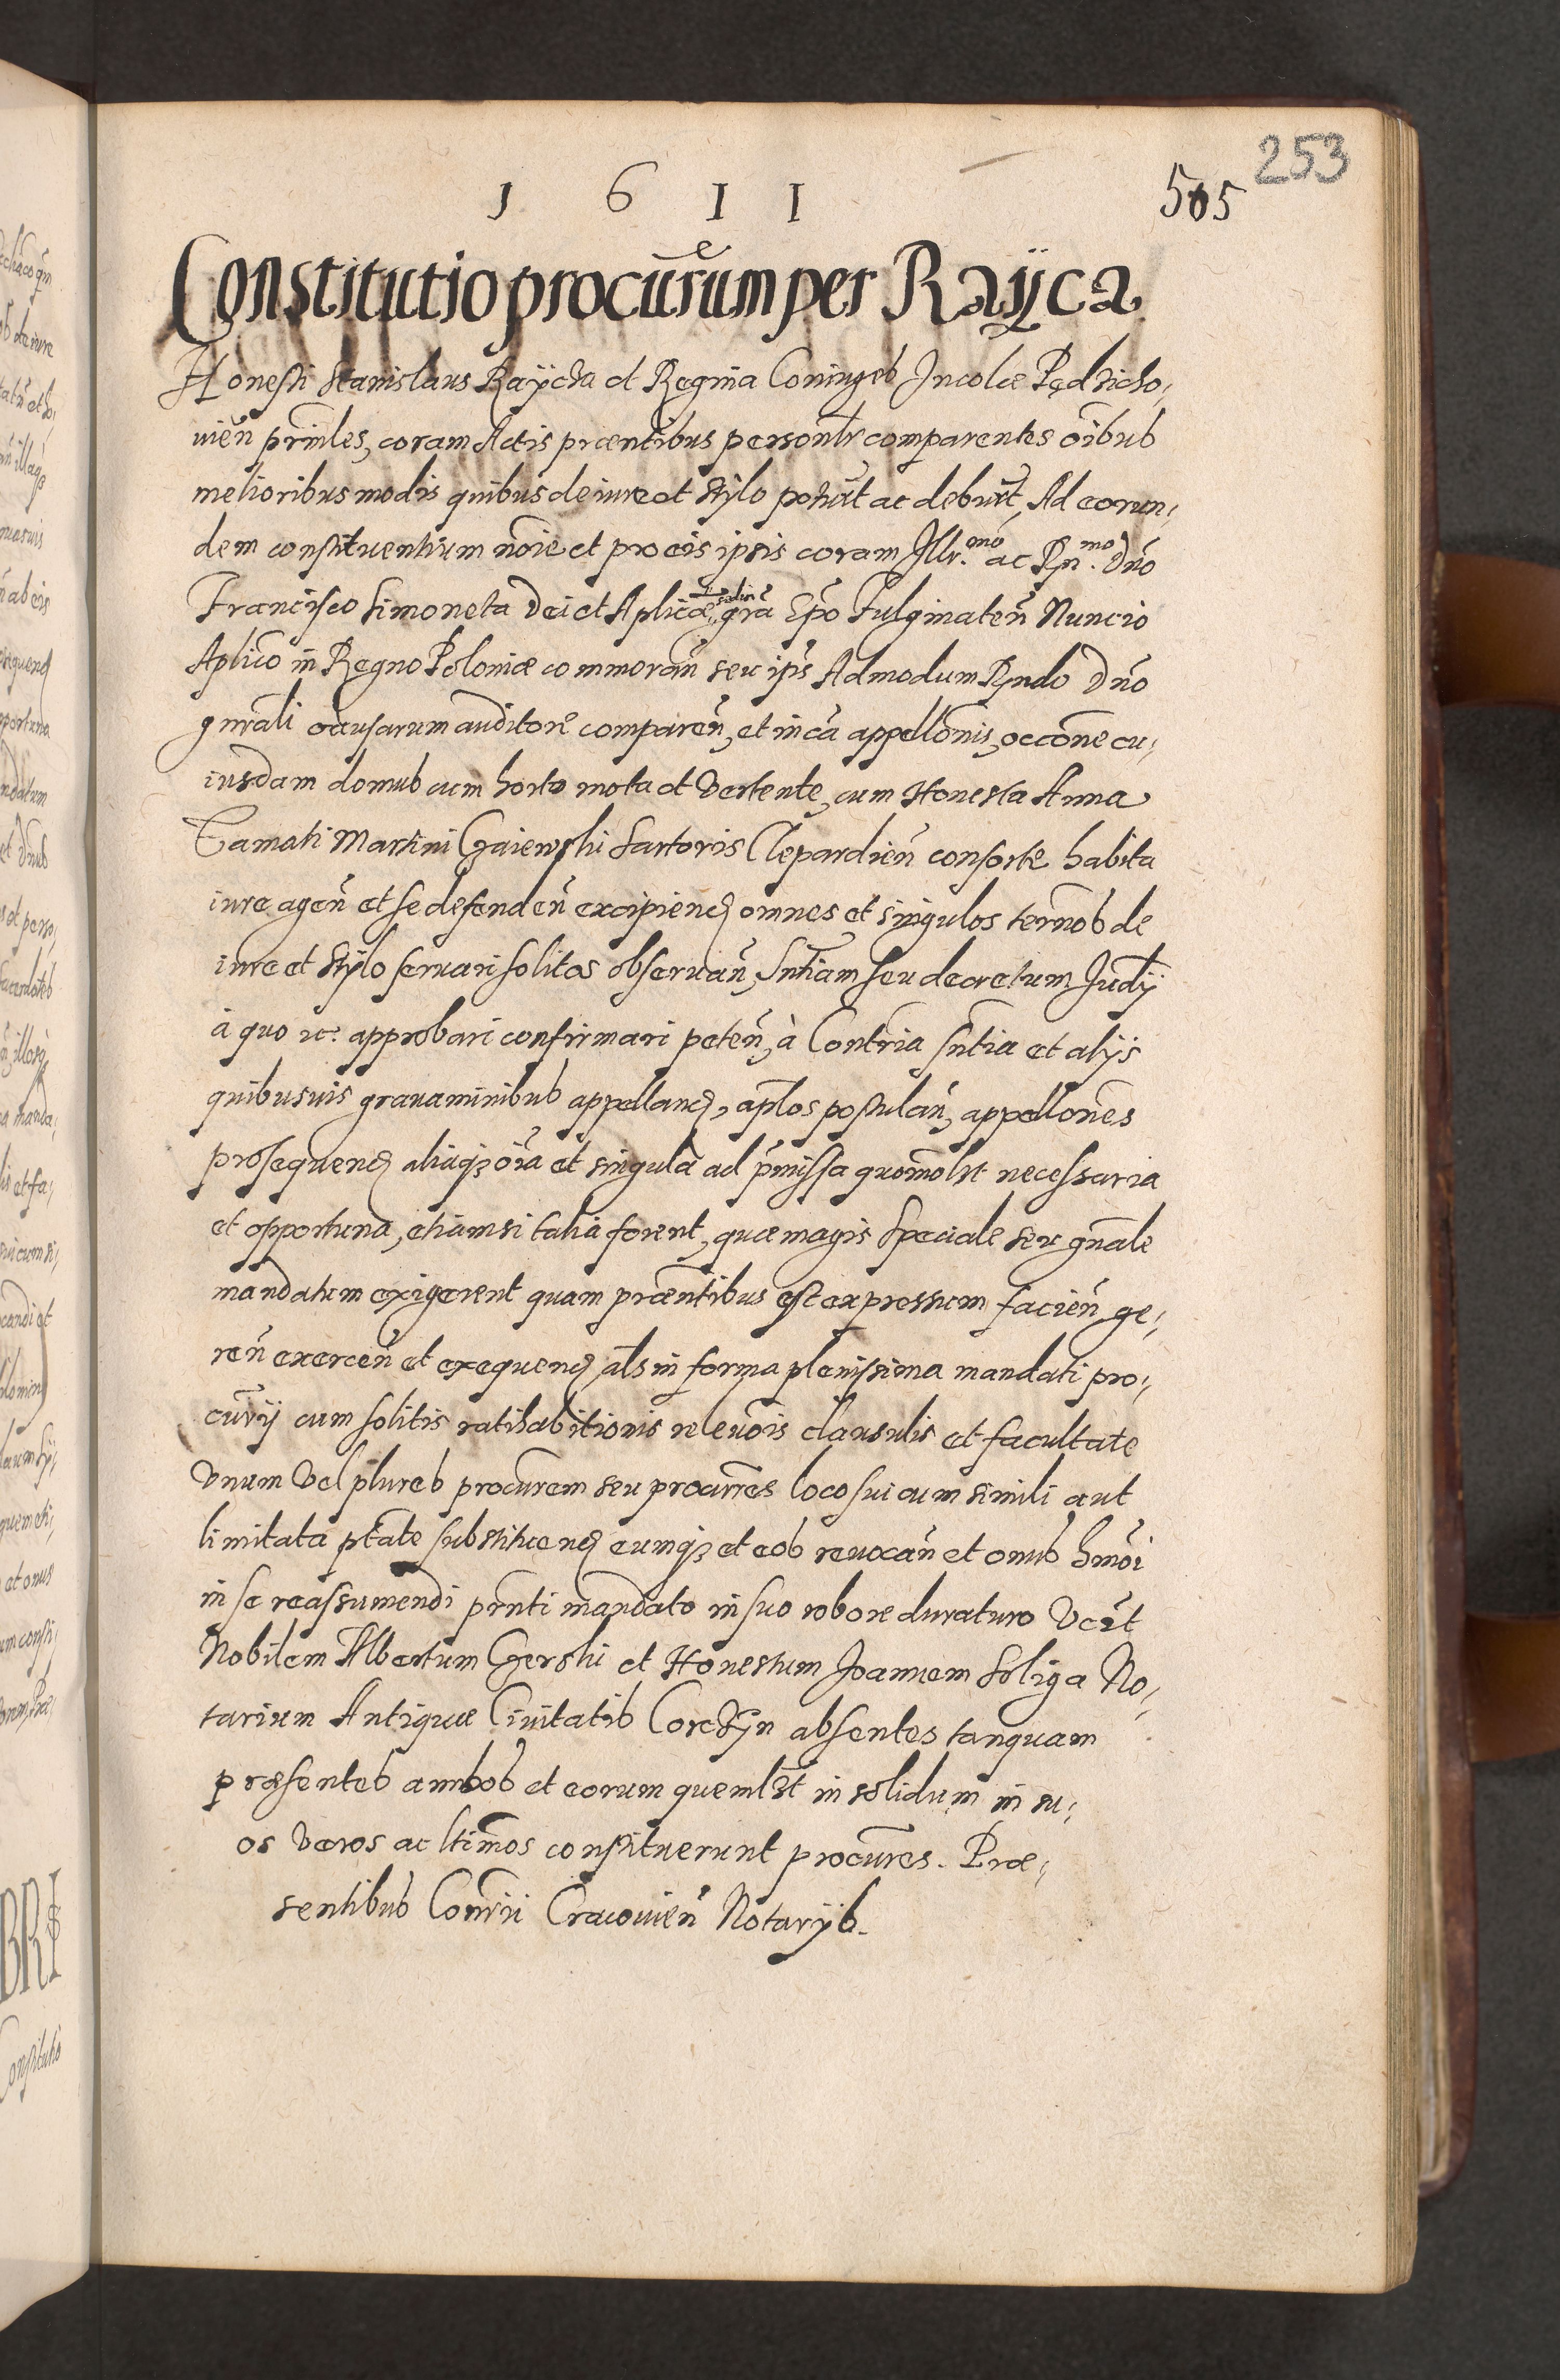 253
1 6 1 1
505
Constitutio procurum per Raÿca
Honesti Stanislaus Raÿcka et Regina Coniuges Incolæ Pędzicho,
uien̄ prin̄les, coram Actis præn̄tibus person̄lr comparentes oībus
melioribus modis quibus de iure et stÿlo potuer̄t ac debuer̄t, Ad eorun,
dem constituentium noīe et pro eis ipsis coram Illr.mo ac Rn.mo Dn̄o
Francisco Simoneta Dei et Aplicæ sedis gr̄a Ep̄o Fulginaten̄ Nuncio
Aplico in Regno Poloniæ commoran̄ seu ip̄s Admodum Rn̄do Dn̄o
gn̄rali causarum auditore comparen̄, et in cā appellōnis, occōne cu,
iusdam domus cum horto mota et vertente, cum Honesta Anna
Famati Martini Gaiewski Sartoris Clepardien̄ consorte habita
iure agen̄ et se defenden̄ excipiend omnes et singulos term̄os de
iure et stÿlo seruari solitos obseruan̄, Sn̄tiam seu decretum Judÿ
à quo etc. approbari confirmari peten̄, à Contr̄ia sn̄tia et alÿs
quibusuis grauaminibus appelland, apl̄os postulan̄, appellōnes
prosequend aliaqz oīa et singula ad p̄missa quomolt necessaria
et opportuna, etiamsi talia forent, quæ magis speciale seu gn̄ale
mandatum exigerent quam præn̄tibus est expressum facien̄ ge,
ren̄ exercen̄ et exequend al̄s in forma plenissima mandati pro,
cur̄ÿ cum solitis ratihabitionis releuōis clausulis et facultate
vnum vel plures procurem seu procurres loco sui cum simili aut
limitata ptāte substituend eumqz et eos reuocan̄ et onus hm̄oi
in se reassumendi prn̄ti mandato in suo robore duraturo Vcelt
Nobilem Albertum Gerski et Honestum Joannem Soliga No,
tarium Antiquæ Ciuitatis Corczÿn absentes tanquam
præsentes ambos et eorum quemlt in solidum in su,
os veros ac ltimos constituerunt procures. Præ,
sentibus Conrii Cracouien̄ Notarÿs.